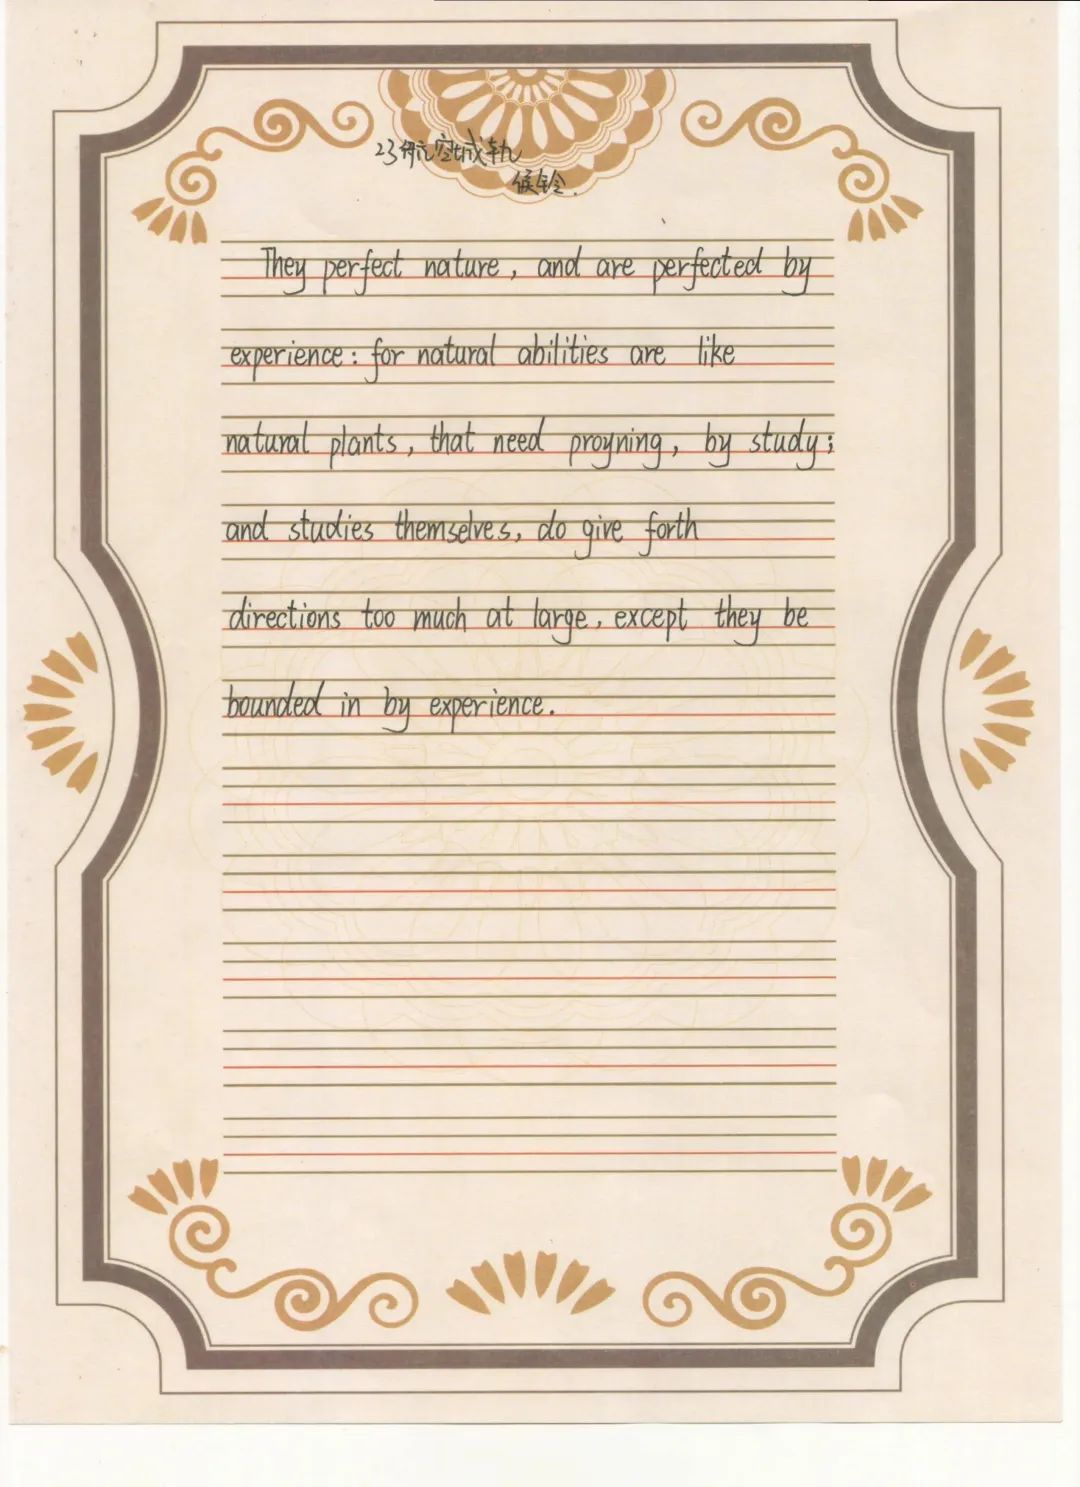 23航空城轨
候铃.
They perfect nature, and are perfected by
experience: for natural abilities are like
natural plants, that need proyning, by study;
and studies themselves, do give forth
directions too much at large, except they be
bounded in by experience.